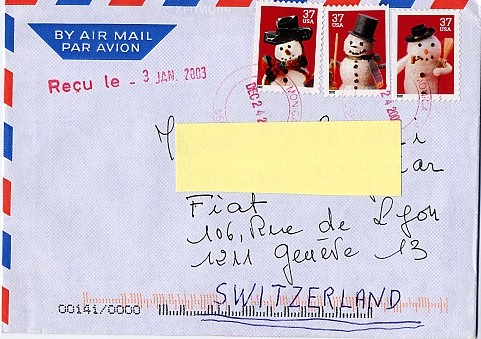 BY AIR MAIL
PAR AVION
Reçu le - 3 JAN. 2003
37
USA
37
USA
37
USA
DEC 24 2
MONICA
Fiat
106, Rue de Lyon
1211 Genève 13
SWITZERLAND
00141/0000